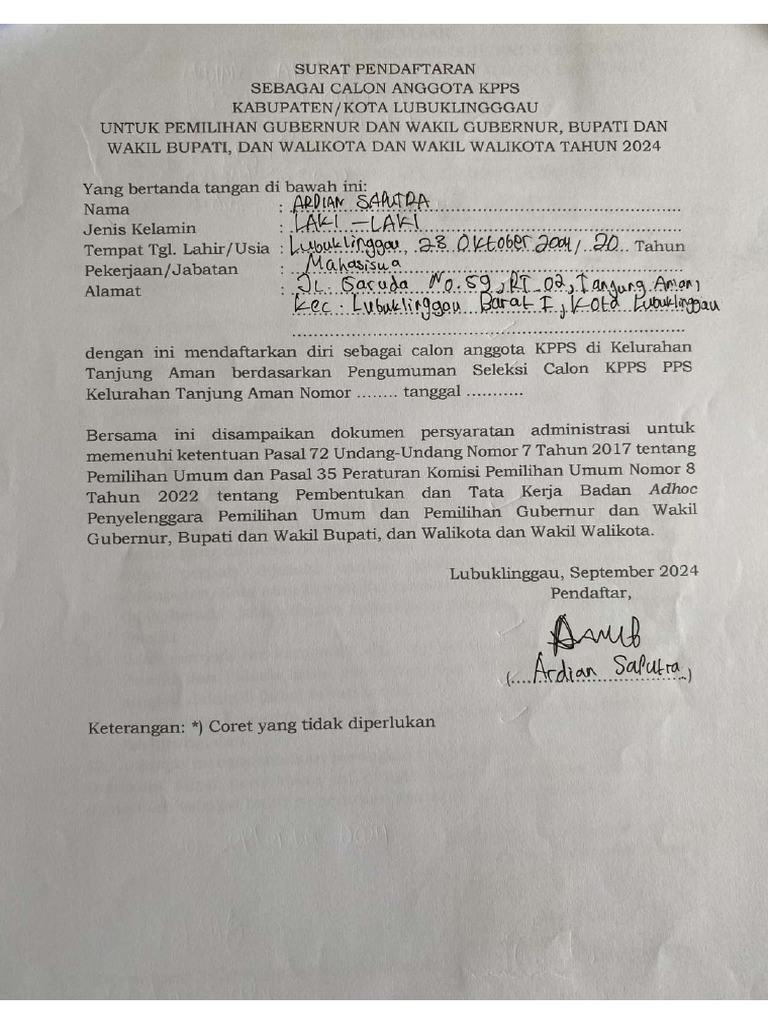 SURAT PENDAFTARAN
SEBAGAI CALON ANGGOTA KPPS
KABUPATEN/KOTA LUBUKLINGGGAU
UNTUK PEMILIHAN GUBERNUR DAN WAKIL GUBERNUR, BUPATI DAN
WAKIL BUPATI, DAN WALIKOTA DAN WAKIL WALIKOTA TAHUN 2024
Yang bertanda tangan di bawah ini:
Nama : ARDIAN SAPUTRA
Jenis Kelamin : LAKI - LAKI
Tempat Tgl. Lahir/Usia : Lubuklinggau, 23 Oktober 2004/ 20 Tahun
Pekerjaan/Jabatan : Mahasiswa
Alamat : JL. Garuda No.59, RT 02, Tanjung Aman,
Kec. Lubuklinggau Barat I, Kota Lubuklinggau
dengan ini mendaftarkan diri sebagai calon anggota KPPS di Kelurahan
Tanjung Aman berdasarkan Pengumuman Seleksi Calon KPPS PPS
Kelurahan Tanjung Aman Nomor ........ tanggal ...........
Bersama ini disampaikan dokumen persyaratan administrasi untuk
memenuhi ketentuan Pasal 72 Undang-Undang Nomor 7 Tahun 2017 tentang
Pemilihan Umum dan Pasal 35 Peraturan Komisi Pemilihan Umum Nomor 8
Tahun 2022 tentang Pembentukan dan Tata Kerja Badan Adhoc
Penyelenggara Pemilihan Umum dan Pemilihan Gubernur dan Wakil
Gubernur, Bupati dan Wakil Bupati, dan Walikota dan Wakil Walikota.
Lubuklinggau, September 2024
Pendaftar,
(....Ardian Saputra..)
Keterangan: *) Coret yang tidak diperlukan